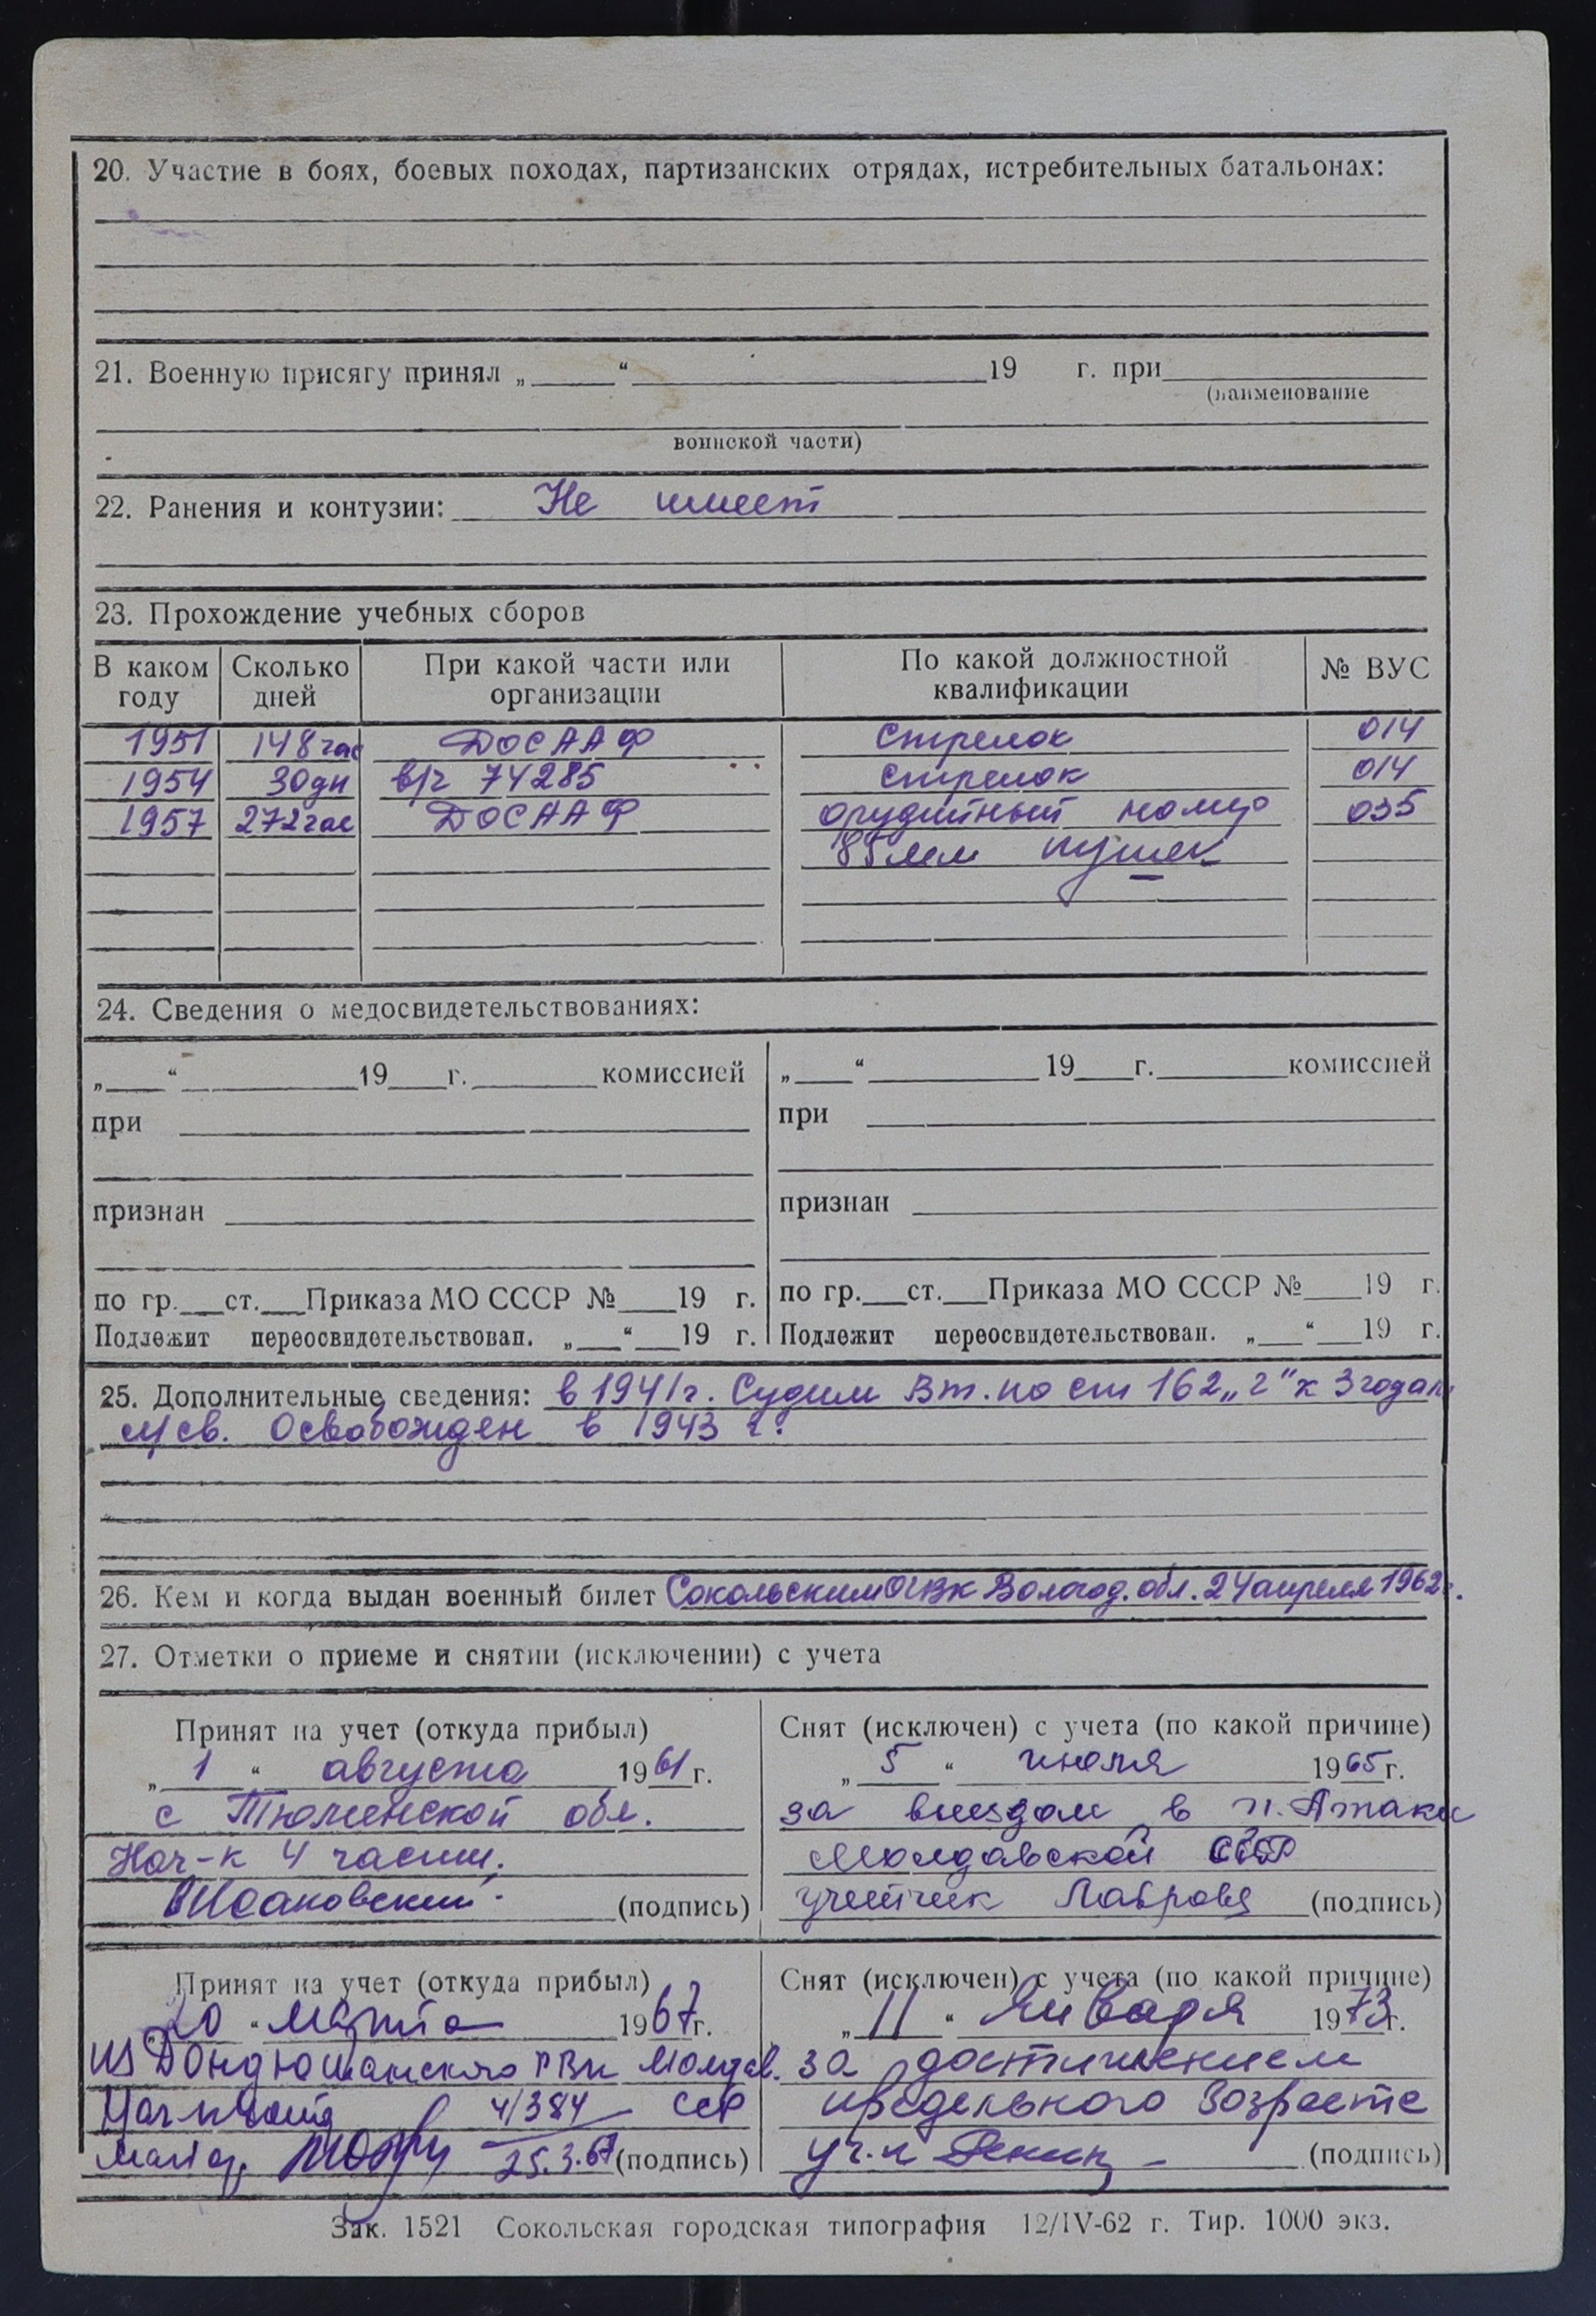 20. Участие в боях, боевых походах, партизанских отрядах, истребительных батальонах:
21. Военную присягу принял „ “ 19 г. при
(наименование
воинской части)
22. Ранения и контузии: Не имеет
23. Прохождение учебных сборов
В каком году Сколько дней При какой части или организации По какой должностной квалификации № ВУС
1951 148 час ДОСААФ стрелок 014
1954 30 дн в/ч 74285 стрелок 014
1957 272 час ДОСААФ орудийный номер 035
85 мм пушек
24. Сведения о медосвидетельствованиях:
„ “ 19 г. комиссией „ “ 19 г. комиссией
при при
признан признан
по гр. ст. Приказа МО СССР № 19 г. по гр. ст. Приказа МО СССР № 19 г.
Подлежит переосвидетельствован. „ “ 19 г. Подлежит переосвидетельствован. „ “ 19 г.
25. Дополнительные сведения: в 1941 г. Судим Вт. по ст 162 „г“ к 3 годам
л/св. Освобожден в 1943 г.
26. Кем и когда выдан военный билет Сокольским ОГВК Вологод. обл. 24 апреля 1962 г.
27. Отметки о приеме и снятии (исключении) с учета
Принят на учет (откуда прибыл) Снят (исключен) с учета (по какой причине)
„ 1 “ августа 1961 г. „ 5 “ июля 1965 г.
с Тюменской обл. за выездом в п. Атаки
Нач-к 4 части. Молдавской ССР
(подпись) учетчик Лаврова (подпись)
Принят на учет (откуда прибыл) Снят (исключен) с учета (по какой причине)
„20“ марта 1967 г. „ 11 “ Января 1973 г.
из Дондюшанского РВК Молдав. за достижением
4/384 ССР предельного возраста
25.3.67 (подпись) (подпись)
Зак. 1521 Сокольская городская типография 12/IV-62 г. Тир. 1000 экз.